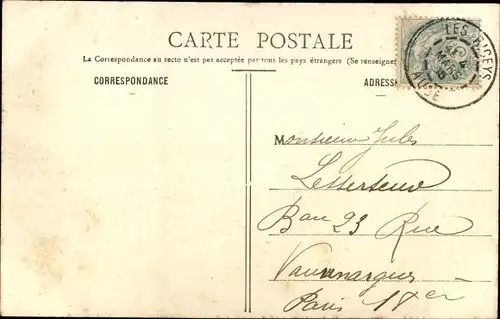 CARTE POSTALE
La Correspondance au recto n'est pas acceptée par tous les pays étrangers (Se renseigner
CORRESPONDANCE
ADRESSE
LES RICEYS
AUBE
Monsieur Jules
Lesserteur
23 Rue
Vauvenargues
Paris 18er